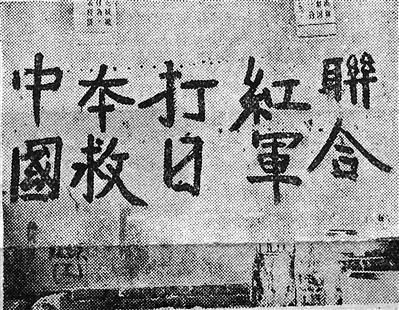 聯合
紅軍
打日
本救
中國